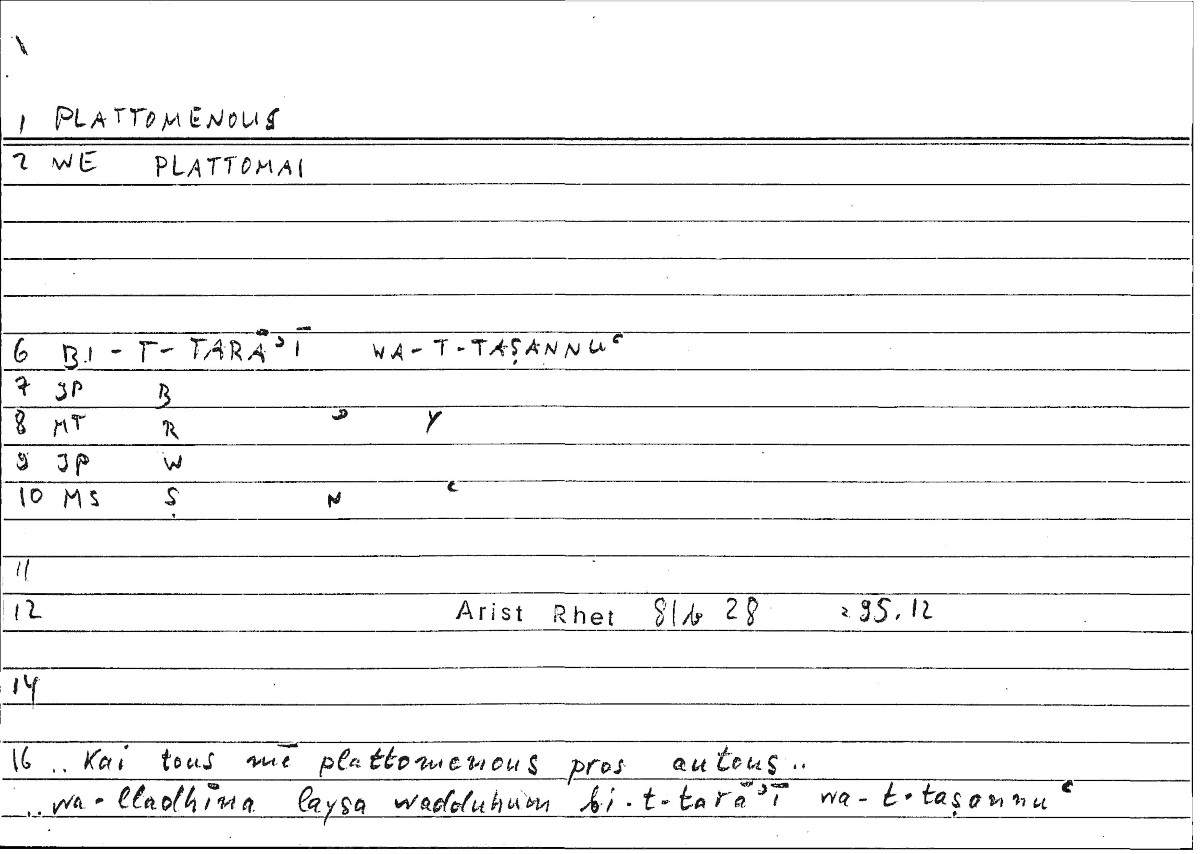 1 PLATTOMENOUS
2 WE PLATTOMAI
6 BI-T-TARĀʾĪ WA-T-TAṢANNUʿ
7 JP B
8 MT R ʾ Y
9 JP W
10 MS Ṣ N ʿ
11
12 Arist Rhet 81b 28 295.12
14
16 .. Kai tous mē plattomenous pros autous ..
.. wa-lladhīna laysa wadduhum bi-t-tarāʾī wa-t-taṣannuʿ